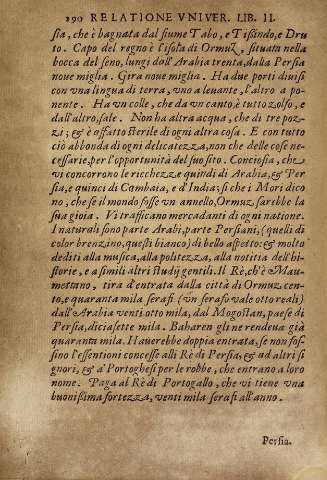 290 RELATIONE VNIVER. LIB. II.
sia, che è bagnata dal fiume Tabo, e Tisindo, e Dru
to. Capo del regno è l'isola di Ormuz, situata nella
bocca del seno, lungi dall'Arabia trenta, dalla Persia
noue miglia. Gira noue miglia. Ha due porti diuisi
con vna lingua di terra, vno a leuante, l'altro a po
nente. Ha vn colle, che da vn canto, è tutto zolfo, e
dall'altro, sale. Non ha altra acqua, che di tre poz-
zi; & è affatto sterile di ogni altra cosa. E con tutto
ciò abbonda di ogni delicatezza, non che delle cose ne-
cessarie, per l'opportunità del suo sito. Conciosia, che
vi concorrono le ricchezze quindi di Arabia, & Per
sia, e quinci di Cambaia, e d'India; si che i Mori dico
no, che se il mondo fosse vn annello, Ormuz sarebbe la
sua gioia. Vi trafficano mercadanti di ogni natione.
I naturali sono parte Arabi, parte Persiani, (quelli di
color brenzino, questi bianco) di bello aspetto: & molto
dediti alla musica, alla politezza, alla notitia dell'hi-
storie, e a simili altri studij gentili. Il Rè, ch'è Mau-
mettano, tira d'entrata dalla città di Ormuz cen-
to, e quaranta mila serafi (vn serafo vale otto reali)
dall'Arabia venti otto mila, dal Mogostan, paese di
Persia, diciasette mila. Baharen gli ne rendeua già
quaranta mila. Hauerebbe doppia entrata, se non fos-
sino l'essentioni concesse alli Rè di Persia, & ad altri si
gnori, & a' Portoghesi per le robbe, che entrano a loro
nome. Paga al Rè di Portogallo, che vi tiene vna
buonissima fortezza, venti mila serafi all'anno.
Persia.